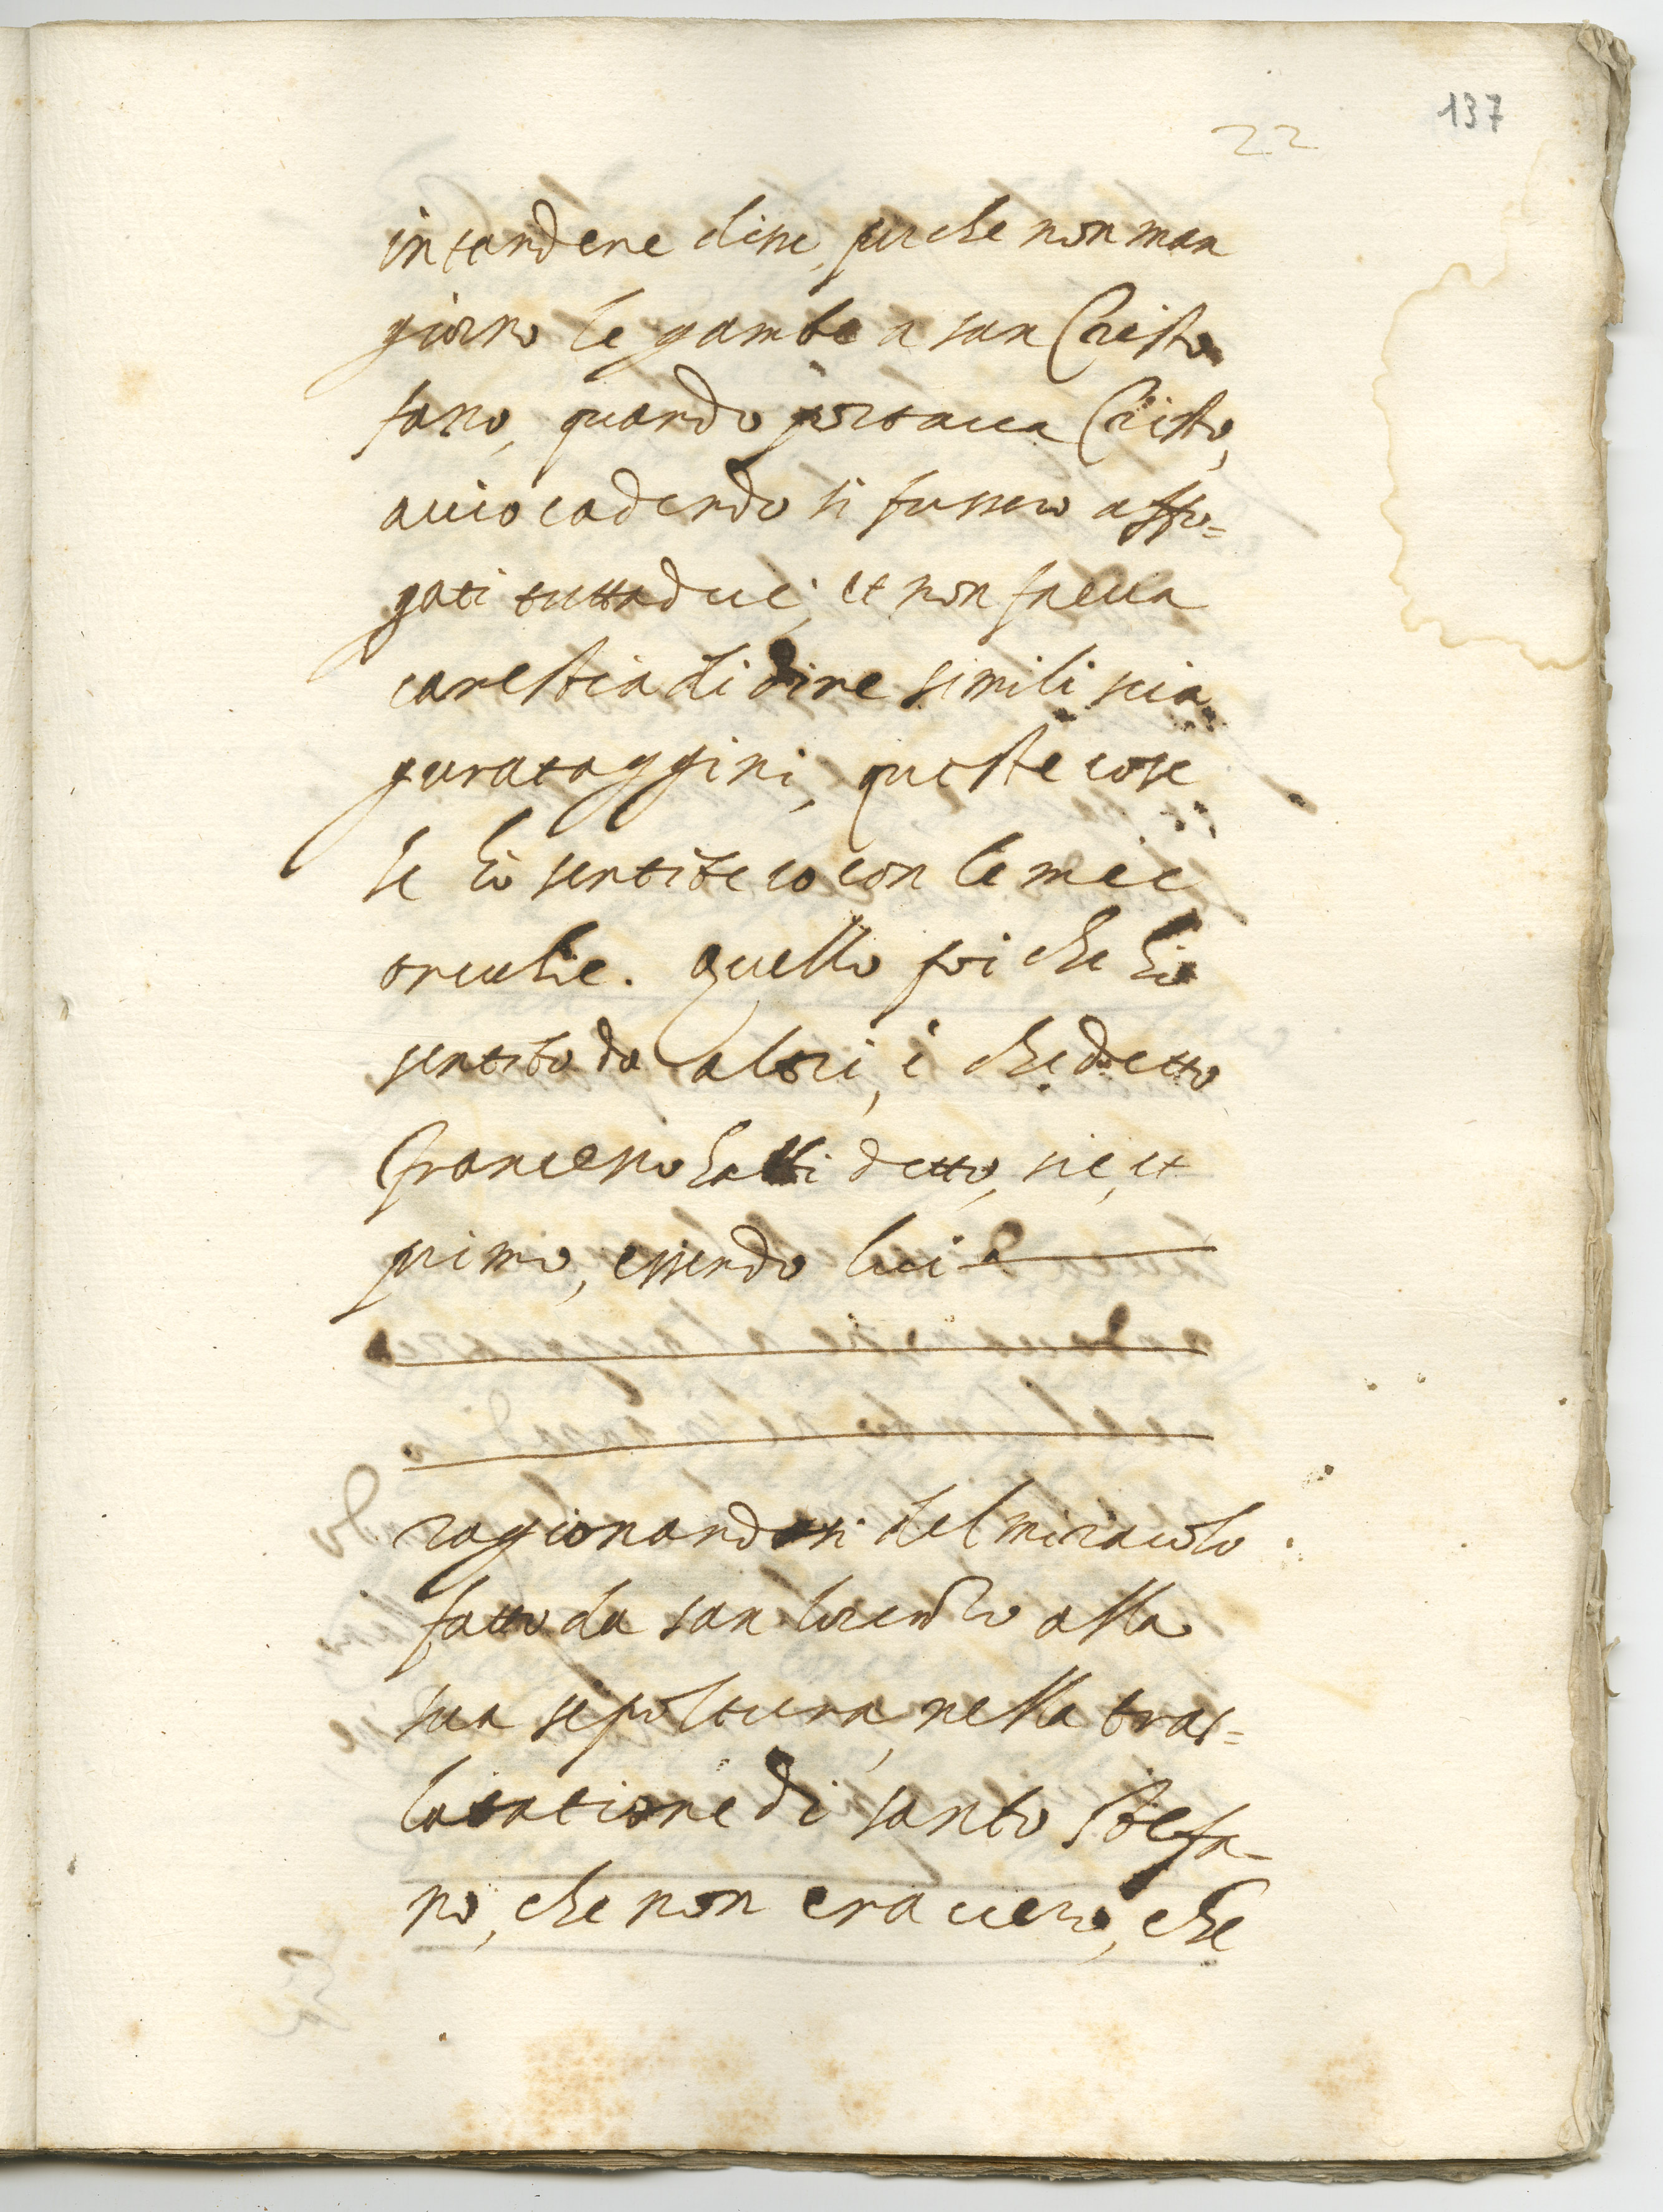 137
22
intendere disse, perche non man
giorno le gambe a san Cristo
fano, quando portaua Cristo,
acciò cadendo si fussero affo=
gati tuttadue, et non faceua
carestia di dire simili scia
gurataggini, queste cose
le hò sentite io con le mie
orechie. Quello poi che hò
sentito da altri, è che detto
Francesco habbi detto, sie, et
primo, essendo lui
ragionandosi del miracolo
fatto da san lorenzo alla
sua sepoltura, nella tras=
latatione di santo Stefa-
no, che non era uero, che